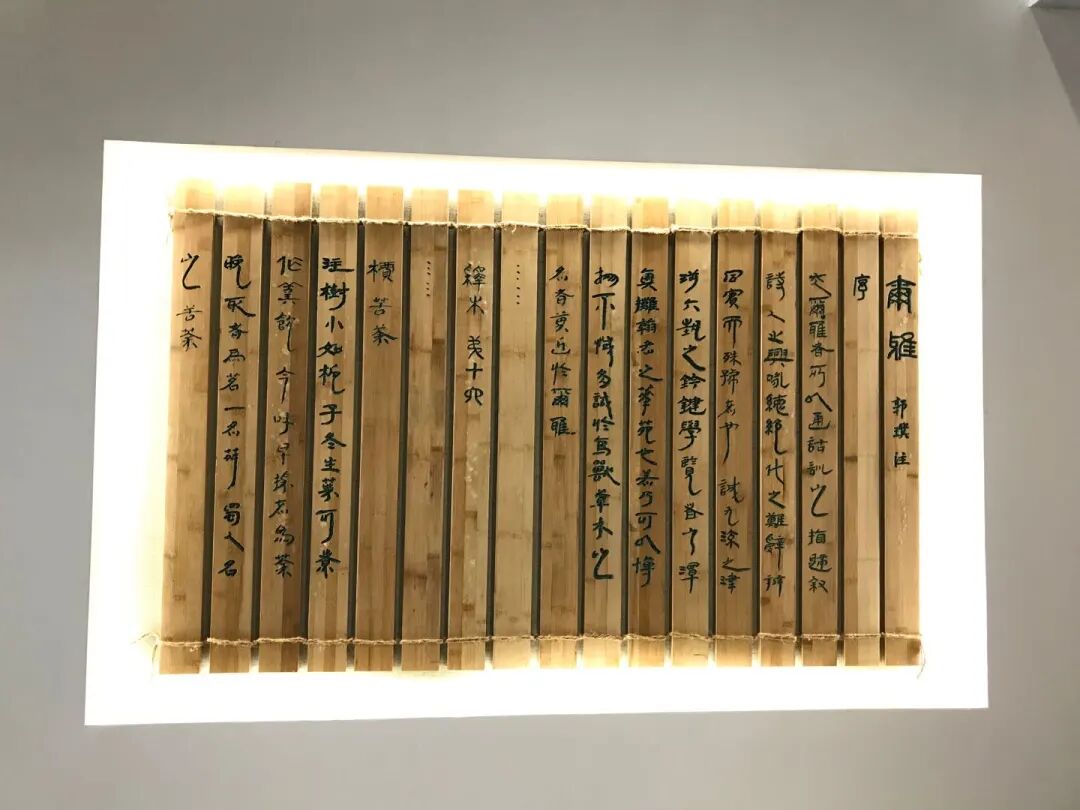 爾雅 郭璞注
序
夫爾雅者所以通詁訓之指歸叙
詩人之興詠總絕代之離辭辨
同實而殊號者也 誠九流之津
涉六藝之鈐鍵學覽者之潭
奧摛翰者之華苑也若乃可以博
物不惑多識於鳥獸草木之
名者莫近於爾雅
……
釋木 弟十四
……
檟 苦荼
注樹小如梔子冬生葉可煮
作羹飲 今呼早採者為荼
晚取者為茗一名荈 蜀人名
之苦荼